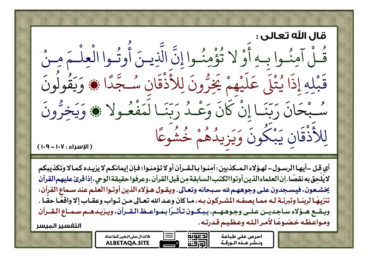 قال الله تعالى :
قُلْ آمِنُوا بِهِ أَوْ لَا تُؤْمِنُوا إِنَّ الَّذِينَ أُوتُوا الْعِلْمَ مِنْ
قَبْلِهِ إِذَا يُتْلَى عَلَيْهِمْ يَخِرُّونَ لِلْأَذْقَانِ سُجَّدًا ۞ وَيَقُولُونَ
سُبْحَانَ رَبِّنَا إِنْ كَانَ وَعْدُ رَبِّنَا لَمَفْعُولًا ۞ وَيَخِرُّونَ
لِلْأَذْقَانِ يَبْكُونَ وَيَزِيدُهُمْ خُشُوعًا
( الإسراء : ١٠٧ - ١٠٩ )
أي قل -أيها الرسول- لهؤلاء المكذبين: آمنوا بالقرآن أو لا تؤمنوا؛ فإن إيمانكم لا يزيده كمالا وتكذيبكم
لا يلحق به نقصًا. إن العلماء الذين أوتوا الكتب السابقة من قبل القرآن، وعرفوا حقيقة الوحي، إذا قرئ عليهم القرآن
يخشعون، فيسجدون على وجوههم لله سبحانه وتعالى. ويقول هؤلاء الذين أوتوا العلم عند سماع القرآن:
تنزيهًا لربنا وتبرئة له مما يصفه المشركون به، ما كان وعد الله تعالى من ثواب وعقاب إلا واقعًا حقًا.
ويقع هؤلاء ساجدين على وجوههم، يبكون تأثرًا بمواعظ القرآن، ويزيدهم سماع القرآن
ومواعظه خضوعًا لأمر الله وعظيم قدرته.
التفسير الميسر
احرص على طباعة
ونشر هذه الورقة
ALBETAQA.SITE